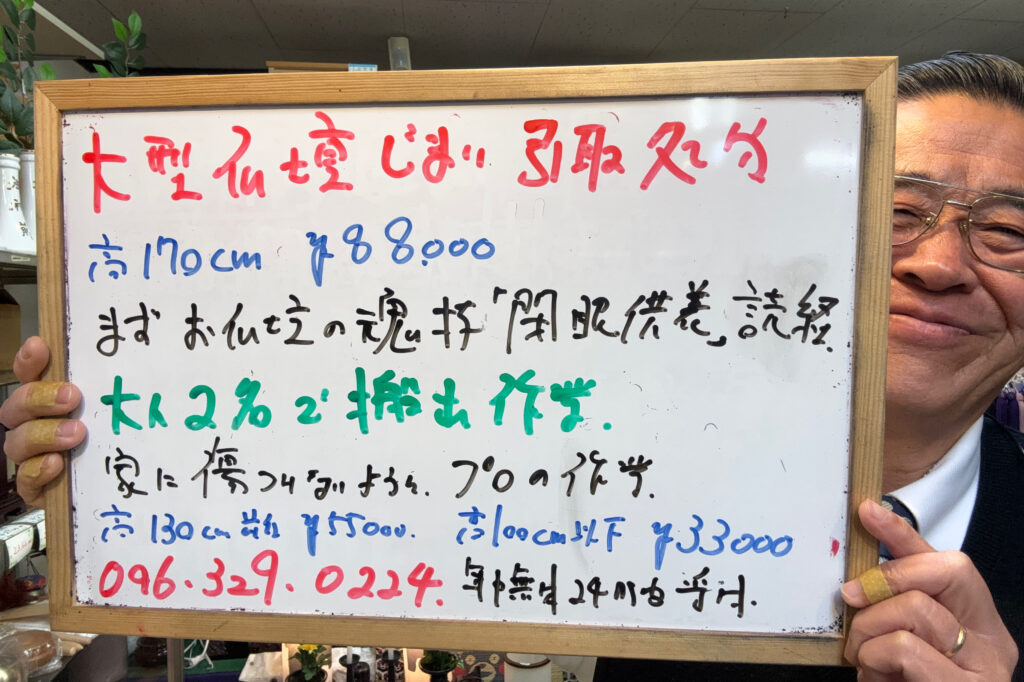 大型仏壇じまい 引取処分
高170cm ¥88,000
まず お仏壇の魂抜「閉眼供養」読経.
大人2名で搬出作業.
家に傷つけないように. プロの作業.
高130cm前後 ¥55000. 高100cm以下 ¥33000
096.329.0224. 年中無休24時間受付.